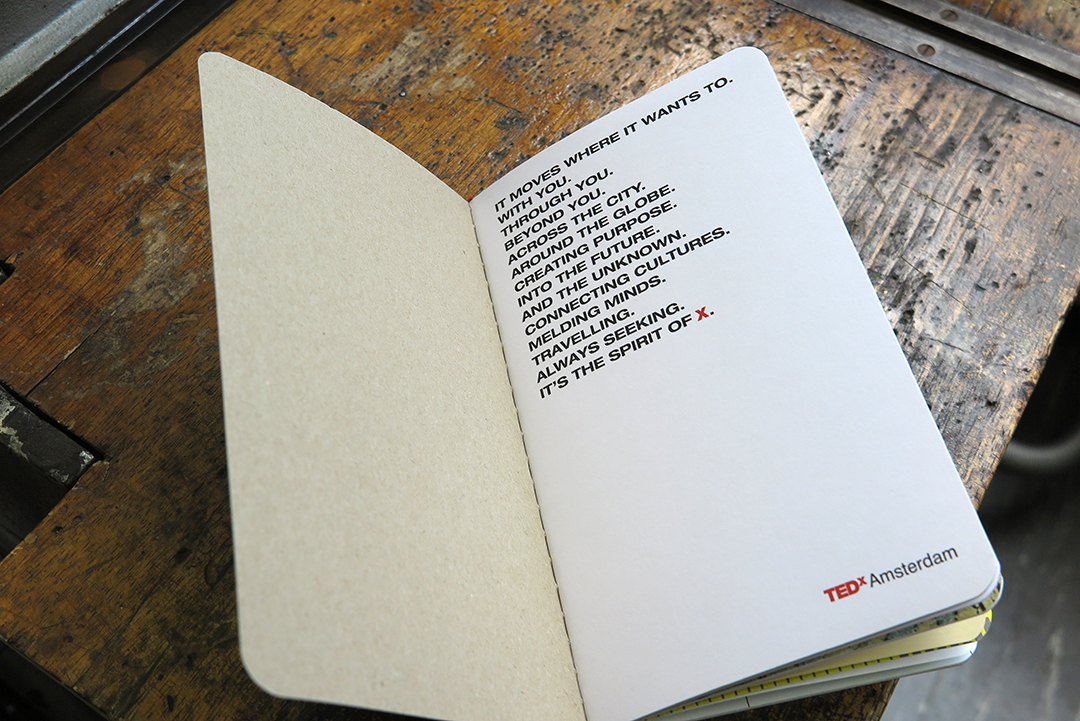 IT MOVES WHERE IT WANTS TO.
WITH YOU.
THROUGH YOU.
BEYOND YOU.
ACROSS THE CITY.
AROUND THE GLOBE.
CREATING PURPOSE.
INTO THE FUTURE.
AND THE UNKNOWN.
CONNECTING CULTURES.
MELDING MINDS.
TRAVELLING.
ALWAYS SEEKING.
IT'S THE SPIRIT OF X.
TEDx Amsterdam